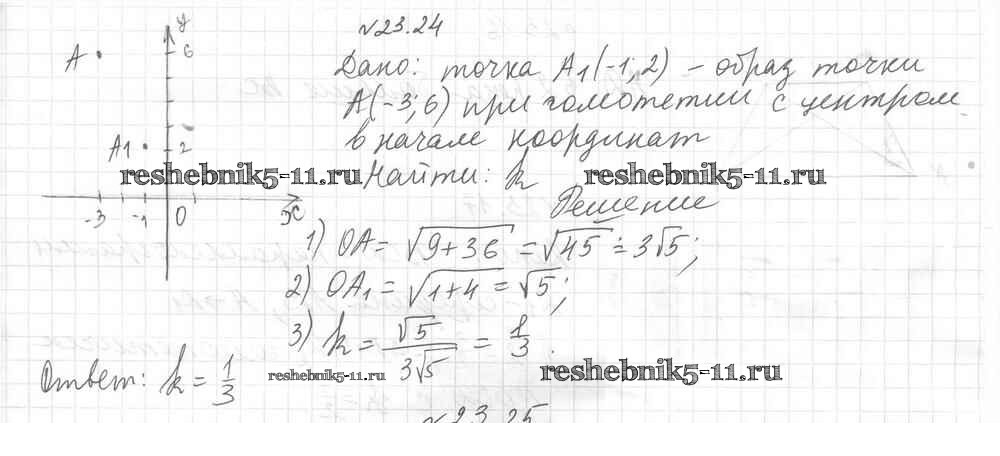 №23.24
Дано: точка A₁(-1; 2) - образ точки
A(-3; 6) при гомотетии с центром
в начале координат
Найти: k
Решение
1) OA = √9+36 = √45 = 3√5;
2) OA₁ = √1+4 = √5;
3) k = √5/3√5 = 1/3.
Ответ: k = 1/3
A
y
6
A1
2
-3
-1
0
x
reshebnik5-11.ru
reshebnik5-11.ru
reshebnik5-11.ru
reshebnik5-11.ru
№23.25